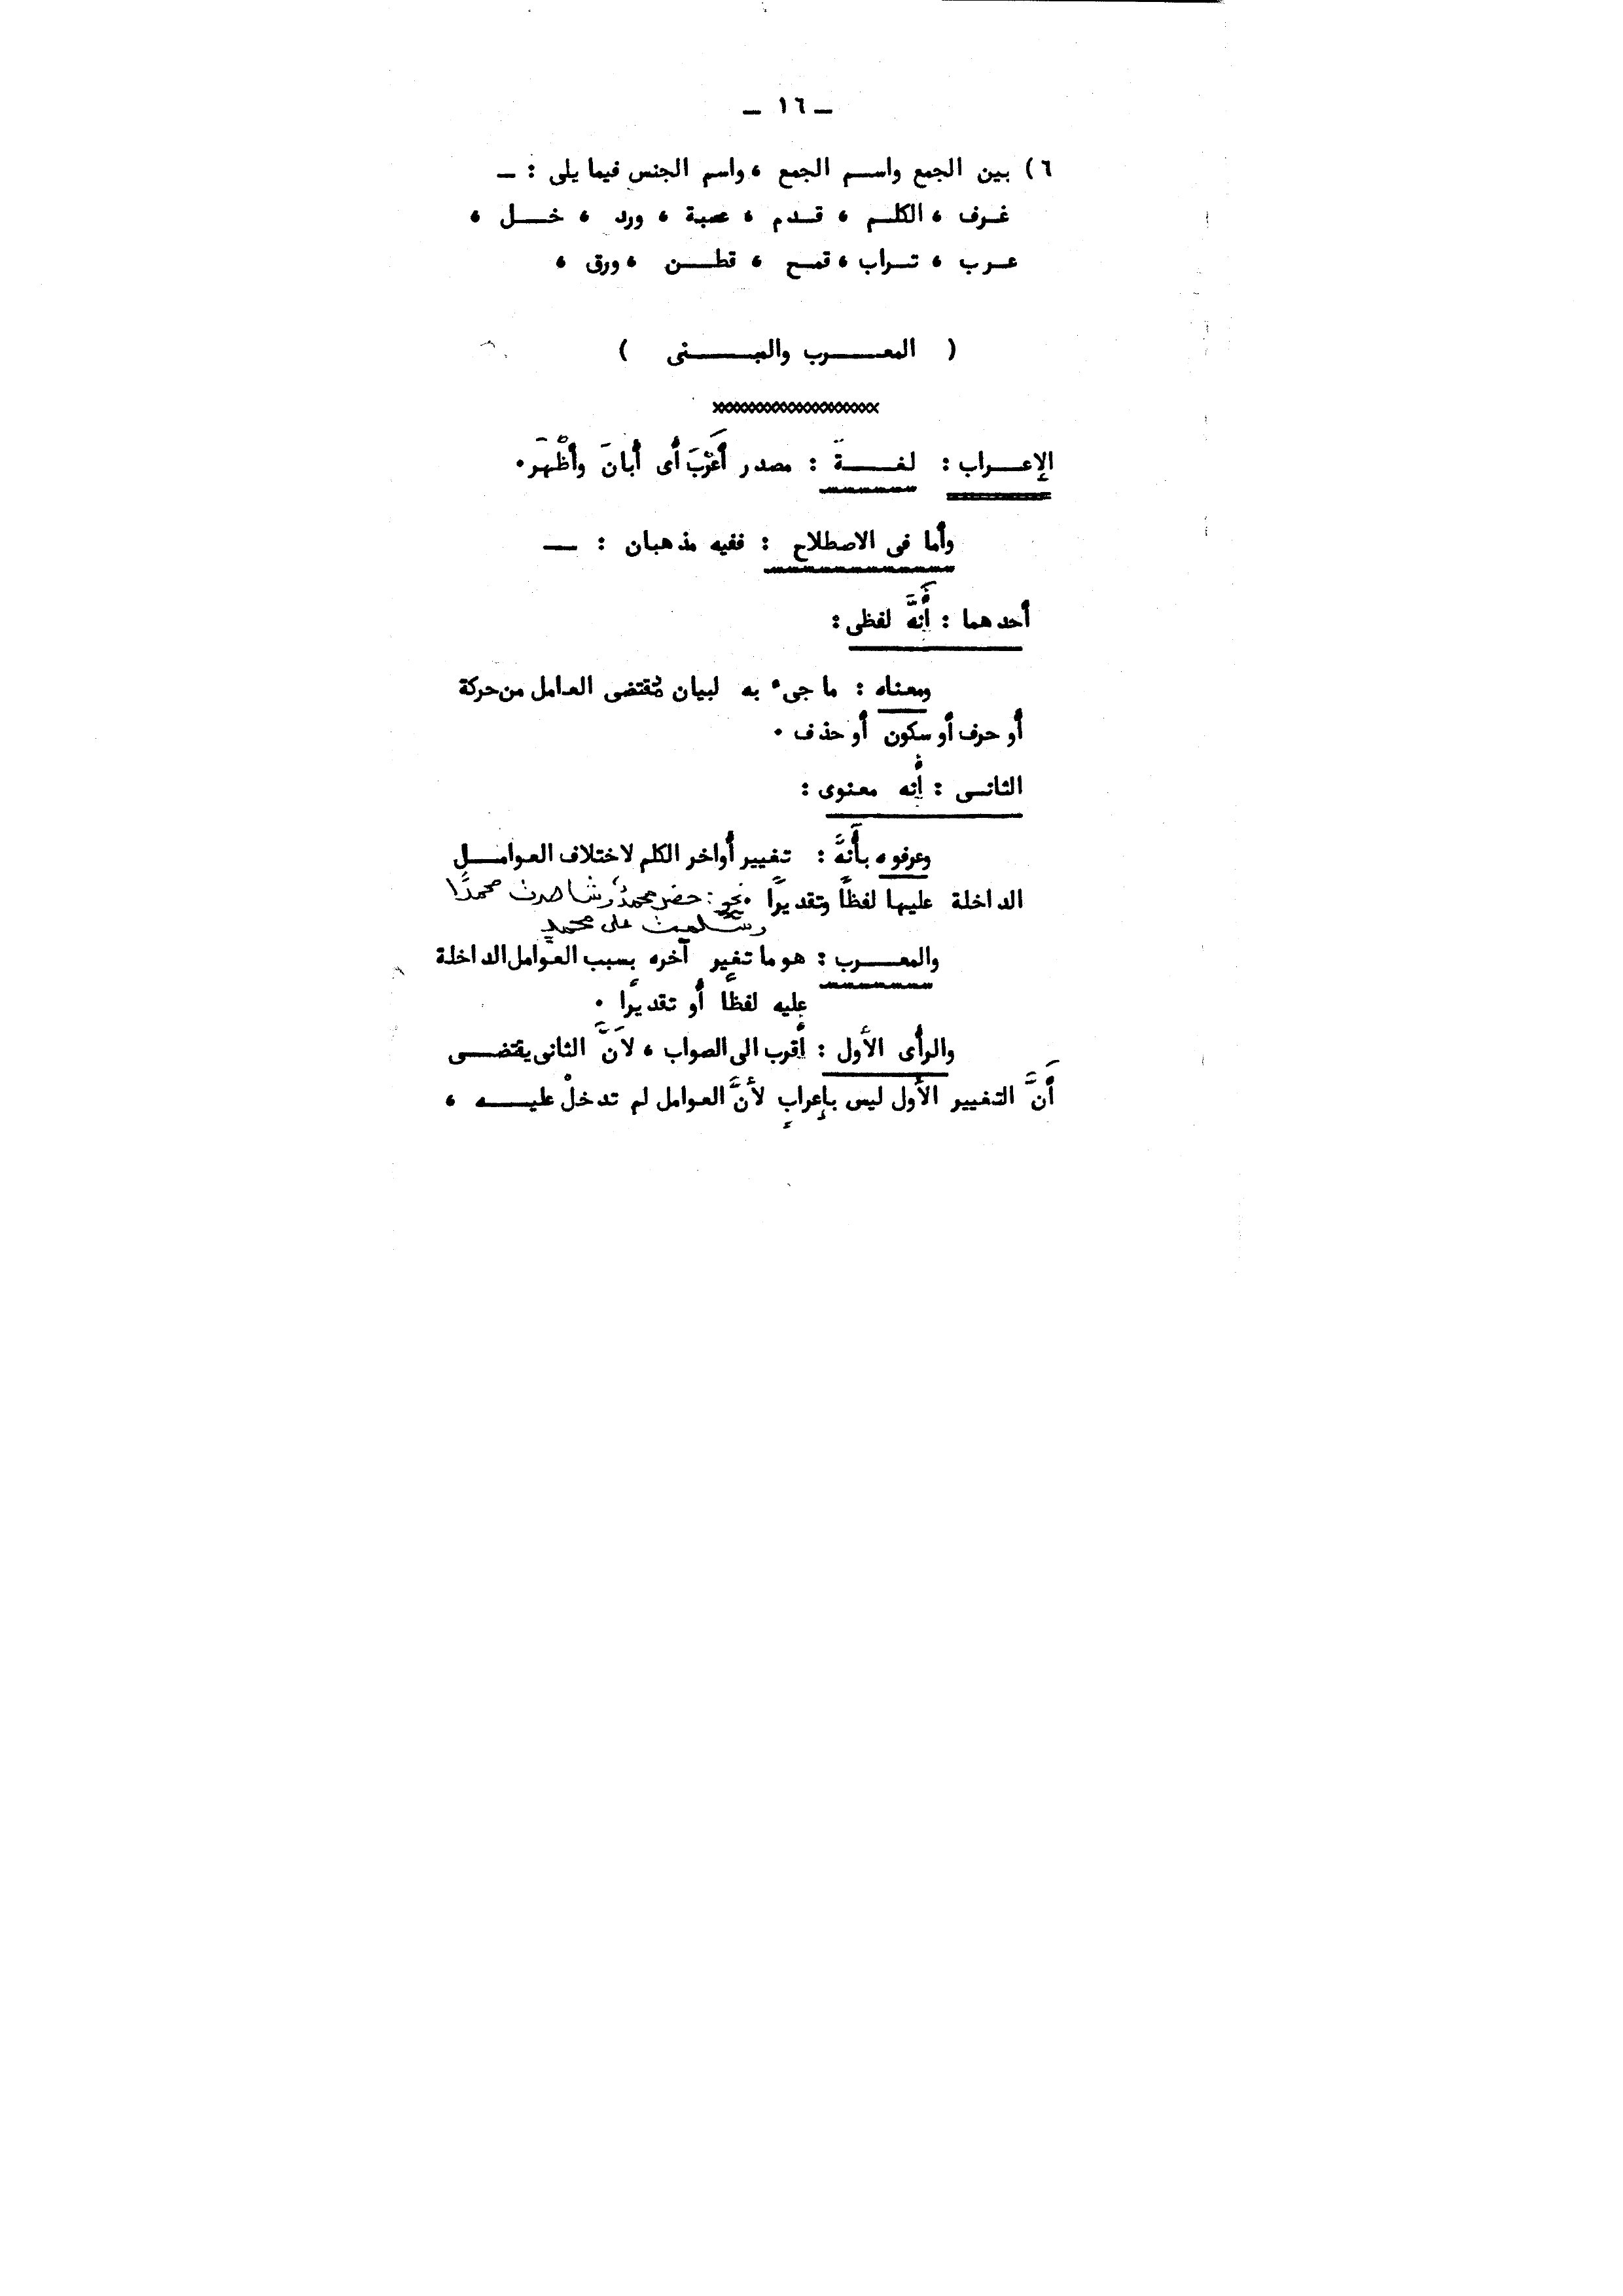 ــ ١٦ ــ
٦) بين الجمع واسم الجمع ، واسم الجنس فيما يلى : ــ
غرف ، الكلم ، قدم ، عصبة ، ورد ، خل ،
عرب ، تراب ، قمح ، قطن ، ورق ،
( المعرب والمبنى )
××××××××××××××××××××
الإعراب : لغة : مصدر أَعْرَبَ أى أبانَ وأظْهَرَ .
وأما فى الاصطلاح : ففيه مذهبان : ــ
أحدهما : أَنَّه لفظى :
ومعناه : ما جىء به لبيان مُقتضى العامل من حركة
أو حرف أو سكون أو حذف .
الثانى : أنه معنوى :
وعرفوه بأَنَّه : تغيير أواخر الكلم لاختلاف العوامل
الداخلة عليها لفظًا وتقديرًا . نحو : حضر محمدٌ ، وشاهدت محمدًا
وسلمت على محمدٍ
والمعرب : هو ما تغير آخره بسبب العوامل الداخلة
عليه لفظًا أو تقديرًا .
والرأى الأول : أقرب الى الصواب ، لأَنَّ الثانى يقتضى
أَنَّ التغيير الأول ليس بإعرابٍ لأنَّ العوامل لم تدخلْ عليه ،